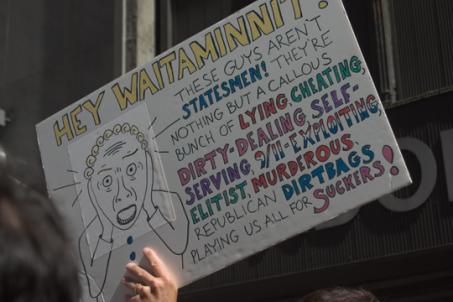 HEY WAITAMINNIT!
THESE GUYS AREN'T
STATESMEN! THEY'RE
NOTHING BUT A CALLOUS
BUNCH OF LYING, CHEATING,
DIRTY-DEALING, SELF-
SERVING, 9/11-EXPLOITING,
ELITIST, MURDEROUS
REPUBLICAN DIRTBAGS
PLAYING US ALL FOR SUCKERS!